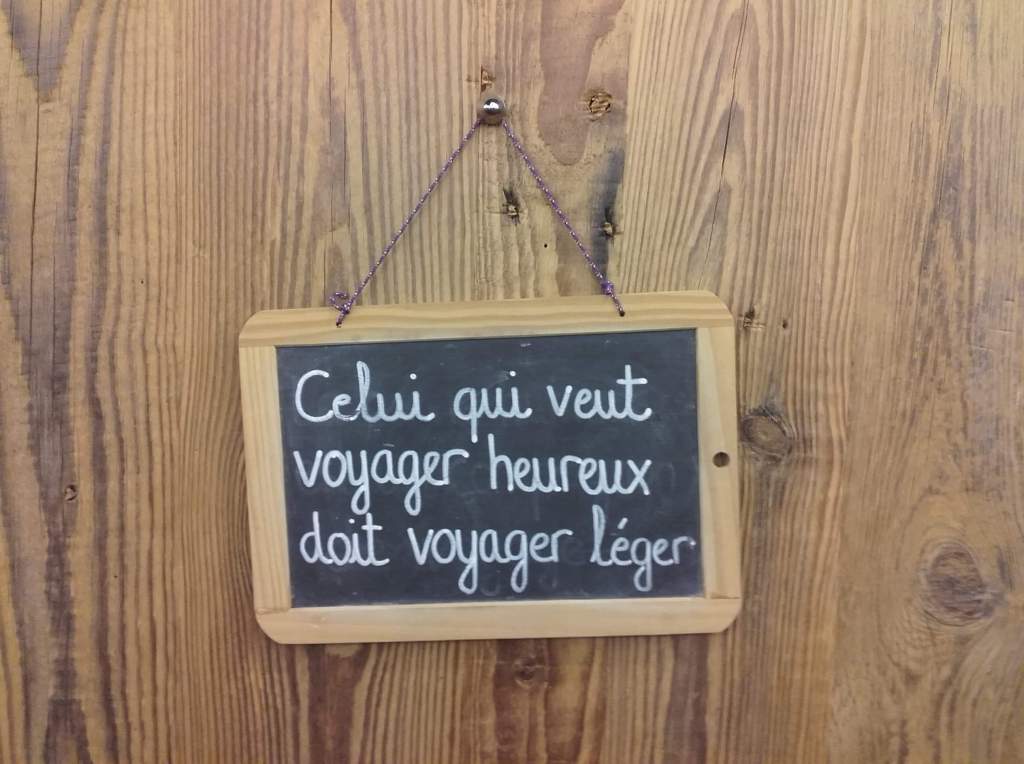 Celui qui veut
voyager heureux
doit voyager léger